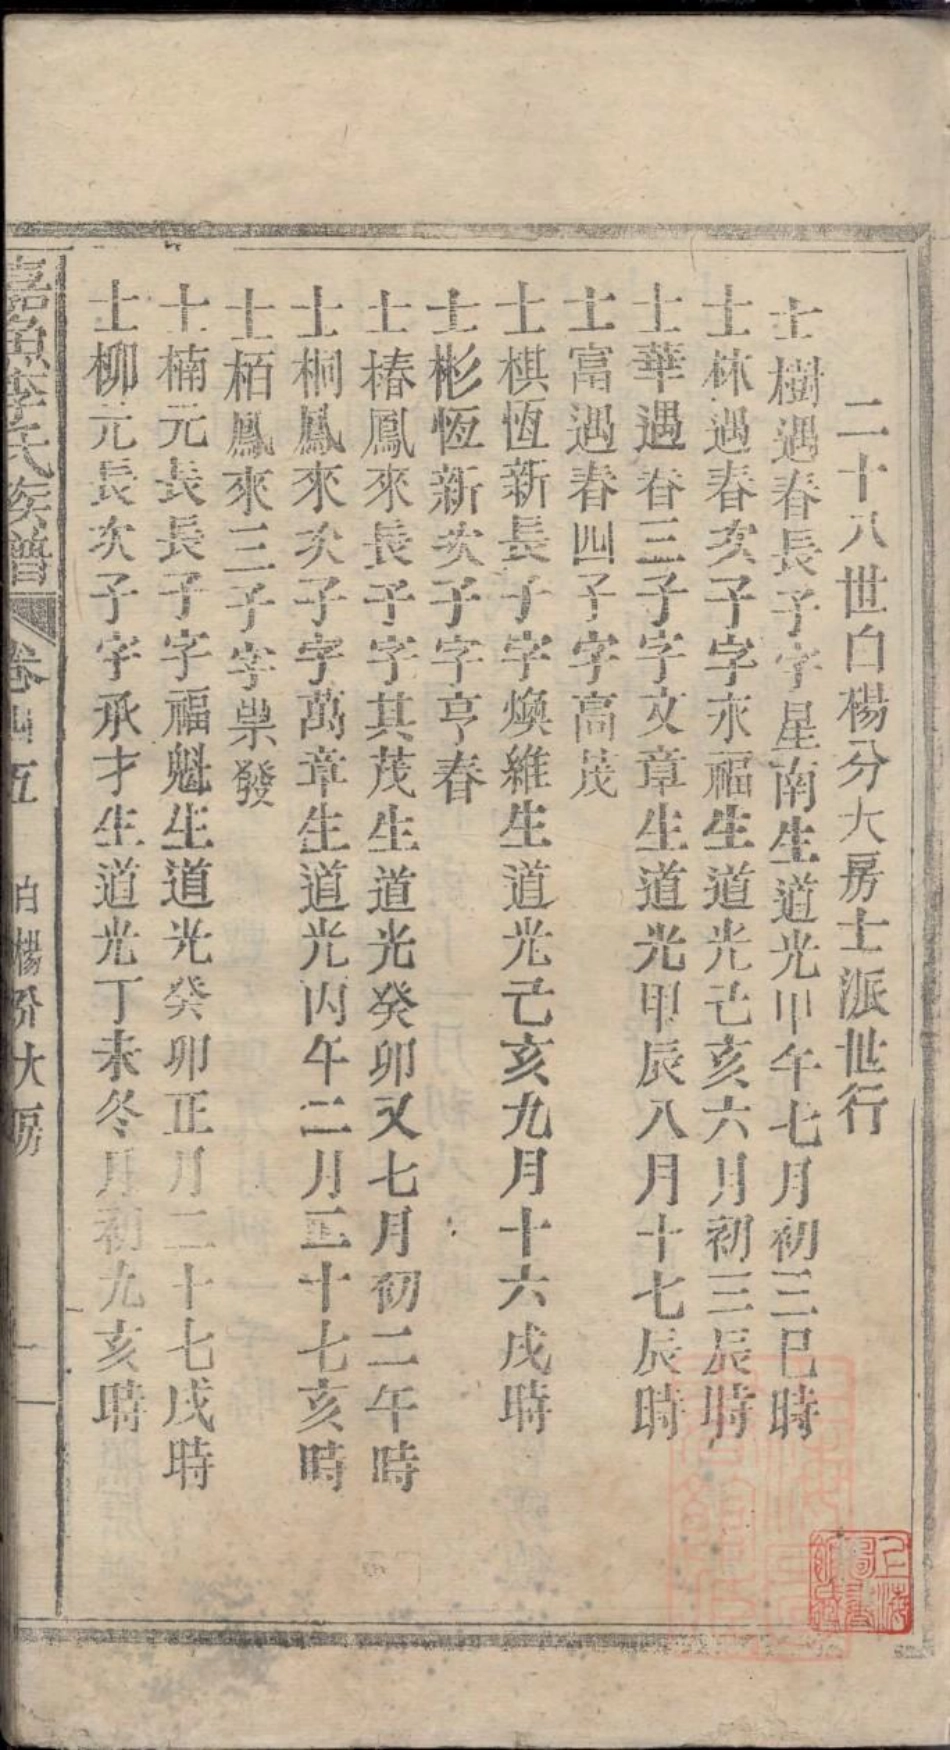 二十八世白楊分大房士派世行
士樹遇春長子字星南生道光甲午七月初三巳時
士林遇春次子字永福生道光己亥六月初三辰時
士華遇春三子字文章生道光甲辰八月十七辰時
士富遇春四子字高茂
士棋恆新長子字煥維生道光己亥九月十六戌時
士彬恆新次子字亨春
士椿鳳來長子字其茂生道光癸卯又七月初二午時
士桐鳳來次子字萬章生道光丙午二月二十七亥時
士栢鳳來三子字崇發
士楠元長長子字福魁生道光癸卯正月二十七戌時
士柳元長次子字承才生道光丁未冬月初九亥時
嘉魚李氏族譜
卷五
白楊分大房
一
上海圖書館藏